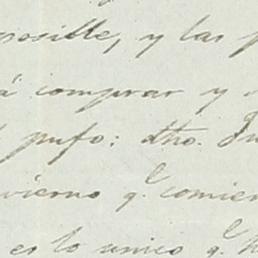 posible, y las
á comprar y
pufo: dho.
vierno q.e comien
es lo unico q.e